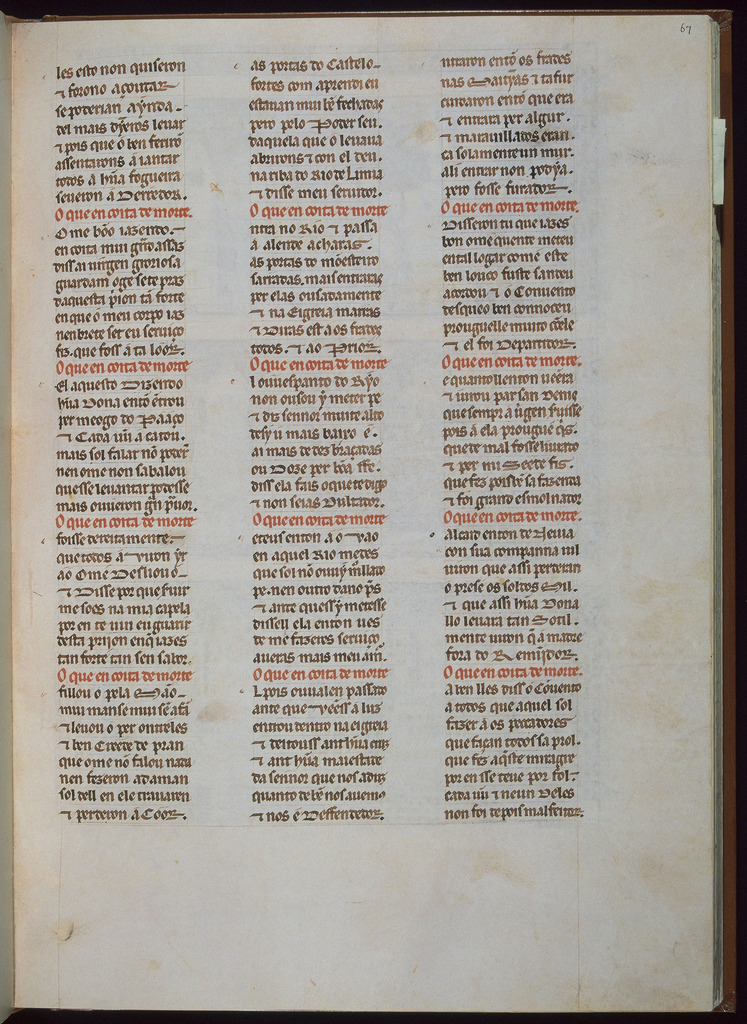 67
les esto non quiseron
⁊ forono açoutar
se poderian aynda.
del mais dỹeros levar
⁊ pois que o ben feriro
assentarons a iantar
todos a hũa fogueira
severon a Derredor.
O que en coita de morte.
O me bõo iazendo.
en coita mui grãd assaz
diss ai uirgen groriosa
guardam oge se te praz
daquesta prijon tã forte
en que o meu corpo iaz
nenbrete se t eu seruiço
fiz. que foss a ta loor.
O que en coita de morte
El aquesto Dizendo
hũa Dona entõ ẽtrou
per meogo do Paaço
⁊ Cada uũ a catou.
mais sol falar nõ poder
nen ome non sabalou
que sse leuantar podesse
mais ouueron grã pauor.
O que en coita de morte
foisse dereitamente.
que todos a uiron yr
ao Ome Desliouo o
⁊ Disse por que seruir
me soes na mia capela
por en te uin eu guarir
desta prijon en q̃ iazes
tan forte tan sen sabor.
O que en coita de morte
fillou o pela Mão
mui manse mui sẽ afã
⁊ leuou o per ontreles
⁊ ben Creede de pran
que ome nõ falou nada
nen fezeron adaman
sol dell en ele trauaren
⁊ perderon a Coor.
as portas do Castelo
fortes com aprendi eu
estauan mui bẽ fechadas
pero pelo Poder seu.
daquela que o leuaua
abriron s ⁊ con el deu.
na riba do Rio de Limia
⁊ disse meu seruidor.
O que en coita de morte
ntra no Rio ⁊ passa
a alende acharas.
as portas do mõesteiro
sarradas. mais entraras
per elas ousadamente
⁊ na Eigreia marras
⁊ Diras est a os frades
todos. ⁊ ao Prior.
O que en coita de morte
l ouu espanto do Ryo
non ousou y meter pe
⁊ diz sennor muit e alto
desy u mais baixo e.
ai mais de dez braçadas
ou Doze per bõa ffe.
diss ela fais o que te digo
⁊ non seias Dultador.
O que en coita de morte
eteus enton ao vao
en aquel Rio medes
que sol nõ ouuy mollado
pe. nen outro dano pres
⁊ ante que ss y metesse
dissell ela enton ues
se me fazedes seruiço
aueras mais meu amor.
O que en coita de morte
L pois ouu alen passado
ante que veess a luz
entrou dentro na eigreia
⁊ deitouss ant hũa cruz
⁊ ant hũa maiestade
da sennor que nos aduz
quanto de bẽ nos auemos
⁊ nos é Deffendedor.
O que en coita de morte.
nraron entõ os frades
nas Matỹas ⁊ tafur
cuidaron entõ que era
⁊ entrara per algur.
⁊ marauillados eran.
ca solamente un mur.
ali entrar non podya.
pero fosse furador.
O que en coita de morte.
Disseron tu que iazes
bon ome quen te meteu
en tal logar come este
ben louco fuste sandeu
acordou ⁊ o Conuento
des que o ben connoceu
prouguelle muito cõele
⁊ el foi Departidor.
O que en coita de morte.
e quanto ll enton uẽera
⁊ iurou par san Denis
que sempr a uirgen seruisse
pois a ela prougue q̃s.
que de mal fosse liurado
⁊ per mi Seede fis.
que fez pois te sa fazenda
⁊ foi grand esmolnador
O que en coita de morte.
Alcaid enton de Neuia
con sua companna uil
uiron que assi perderan
o prese os soldos Mil.
⁊ que assi hũa Dona
llo leuara tan Sotil.
mente uiron q̃ a madre
fora do Remijdor.
O que en coita de morte.
A ben lles diss o Cõuento
a todos que aquel sol
fazer a os peccadores
que façan todos sa prol.
que fez aq̃ste miragre
por en sse teue por fol.
cada uũ ⁊ neun Deles
non foi depois malfeitor.